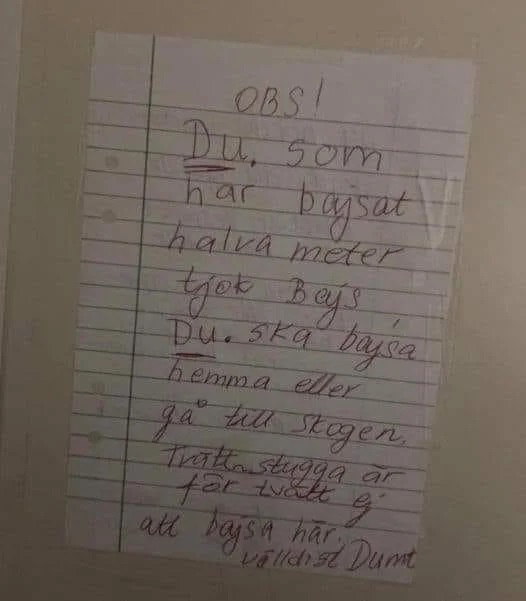 OBS!
Du. som
har bajsat
halva meter
tjok Bajs
Du. ska bajsa
hemma eller
gå till skogen.
Tvätt stugga är
för tvätt ej
att bajsa här.
välldist Dumt